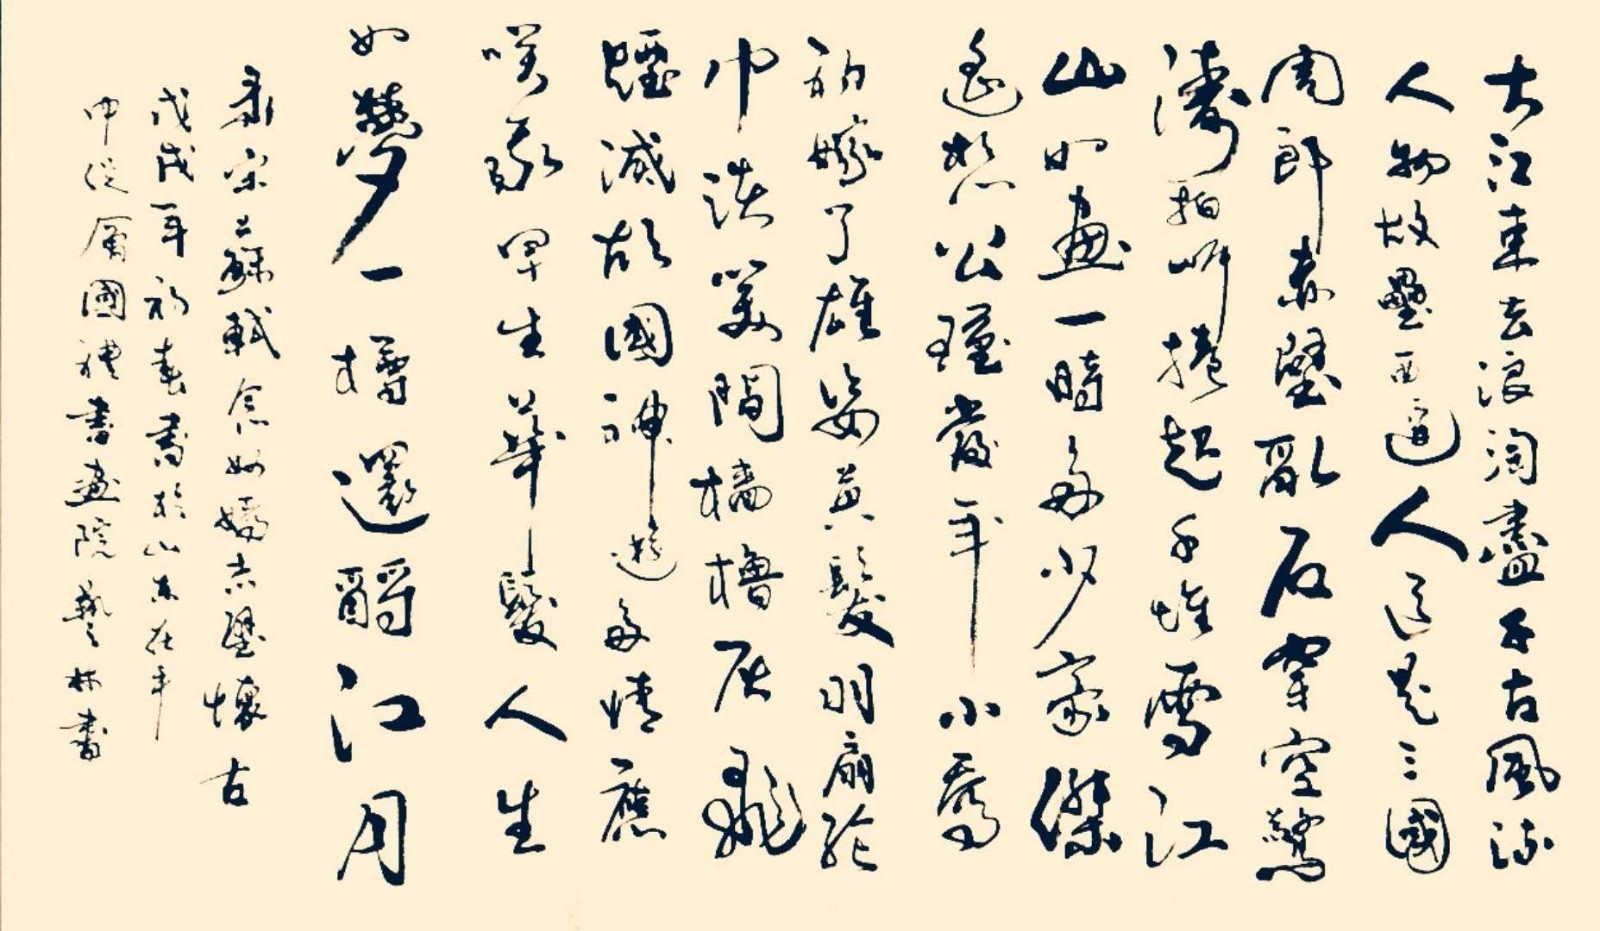 大江東去浪淘盡千古風流
人物故壘西邊人道是三國
周郎赤壁亂石穿空驚
濤拍岸捲起千堆雪江
山如畫一時多少豪傑
遙想公瑾當年小喬
初嫁了雄姿英髮羽扇綸
巾談笑間檣櫓灰飛
煙滅故國神遊多情應
咲我早生華髮人生
如夢一樽還酹江月
录宋蘇軾念奴嬌赤壁懷古
戊戌年初春書於山東在平
中國禮書畫院藝林書